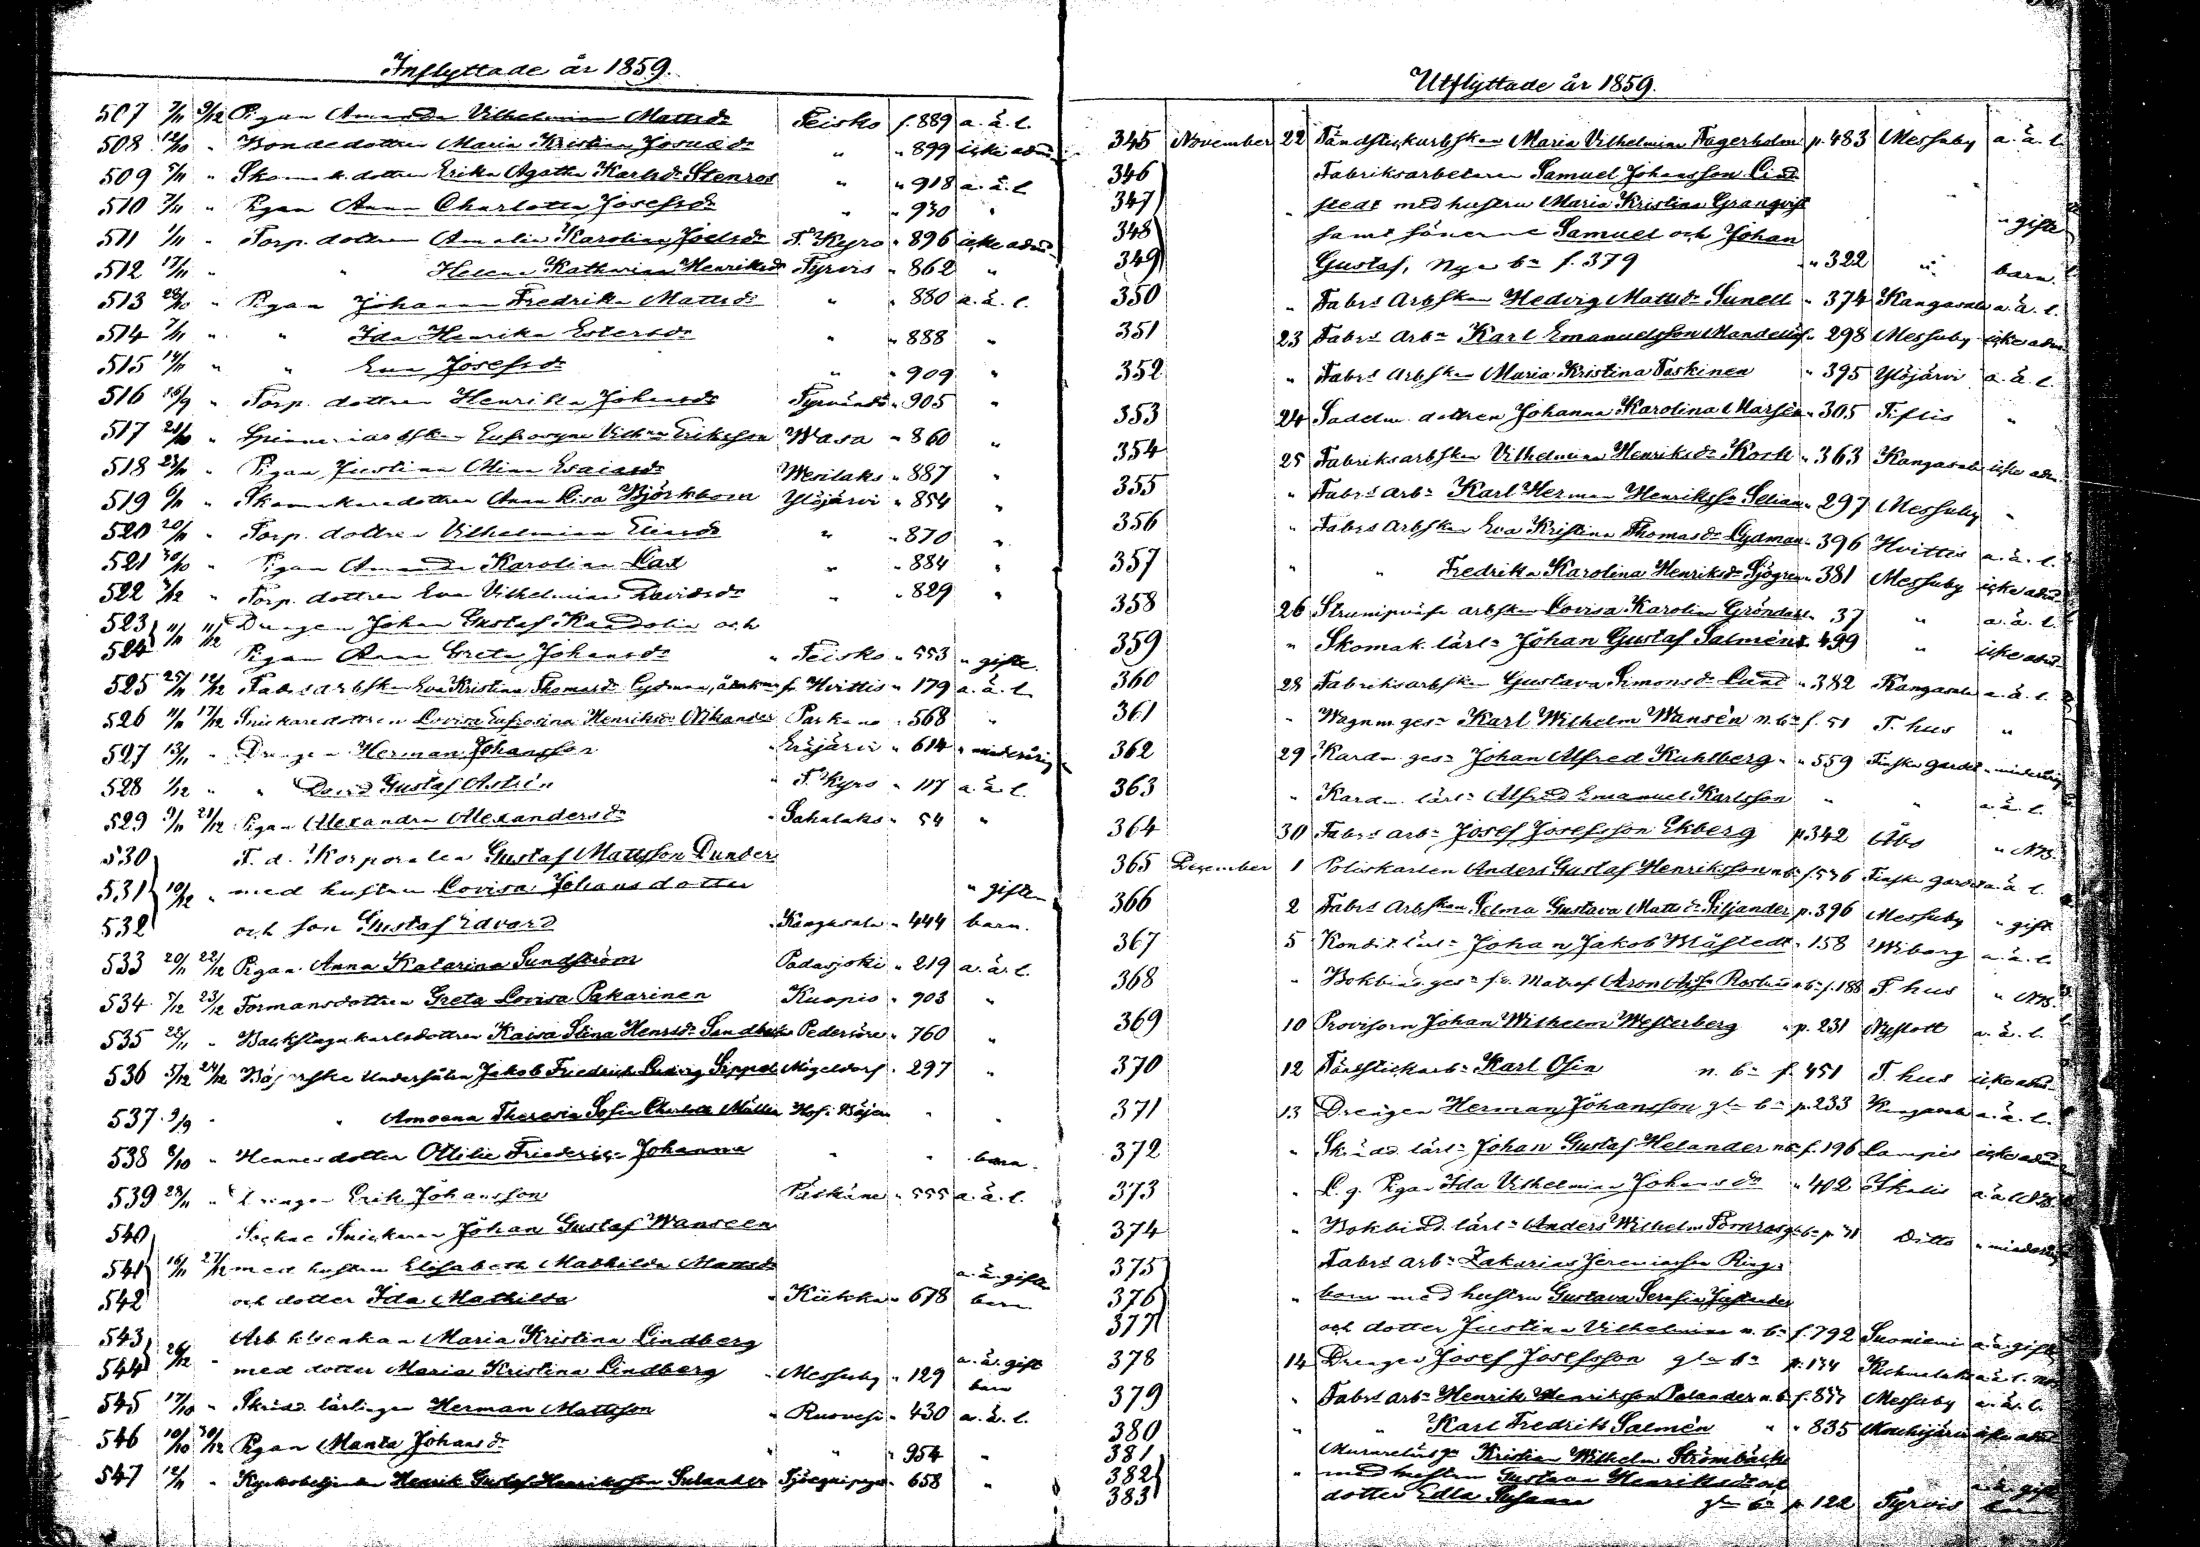 Inflyttade år 1859.
507 7/11 9/12 Pigan Amanda Vilhelmina Mattsdr Teisko f. 889 a. ä. l.
508 12/10 " Bondedottren Maria Kristina Josuædr " " 899 icke adm.
509 5/11 " Skomak. dottren Erika Agatha Karlsdr Stenros " " 918 a. ä. l.
510 7/11 " Pigan Anna Charlotta Josefsdr " " 930 "
511 1/11 " Torp. dottren Amalia Karolina Joelsdr T. Kyro " 896 icke adm.
512 17/11 " " Helena Katharina Henriksdr Tyrvis " 862 "
513 28/10 " Pigan Johanna Fredrika Mattsdr " " 880 a. ä. l.
514 7/11 " " Ida Henrika Estersdr " " 888 "
515 14/11 " " Eva Josefsdr " " 909 "
516 /9 " Torp. dottren Henrika Johansdr Tyrvändö " 905 "
517 /10 " Eufrosyne Vilhna Eriksson Wasa " 860 "
518 23/10 " Pigan Justina Mina Esaiasdr Wesilaks " 887 "
519 6/11 " Skomakaredottren Anna Lisa Björkbom Ylöjärvi " 854 "
520 20/11 " Torp. dottren Vilhelmina Eliasdr " " 870 "
521 30/10 " Pigan Amanda Karolina Lax " " 884 "
522 2/12 " Torp. dottren Eva Vilhelmina Davidsdr " " 829 "
523 11/11 11/12 Drengen Johan Gustaf Kandolin och
524 Pigan Anna Greta Johansdr " Teisko " 553 " gifte.
525 25/11 12/12 Fabrsarbskan Eva Kristina Thomasdr Lydman, fr Hvittis " 179 a. ä. l.
526 11/11 17/12 Snickaredottren Lovisa Eufrosina Henriksdr Nikander Parkano " 568 "
527 13/11 " Drengen Herman Johansson " Eräjärvi " 614 " minderårig
528 1/12 " " David Gustaf Astrén " T. Kyro " 117 a. ä. l.
529 9/11 21/12 Pigan Alexandra Alexandersdr " Sahalaks " 54 "
530 F. d. Korporalen Gustaf Mattsson Dunder
531 10/12 " med hustru Lovisa Johansdotter " gifte
532 och son Gustaf Edvard " Kangasala " 444 barn.
533 20/11 22/12 Pigan Anna Katarina Sundström Padasjoki " 219 a. ä. l.
534 7/12 23/12 Formansdottren Greta Lovisa Pakarinen Kuopio " 903 "
535 28/11 " Backstugukarlsdottren Kaisa Stina Henrsdr Sandbacka Pedersöre " 760 "
536 5/12 24/12 Bajerske Undersåten Jakob Friedrich Ludvig Sippel Mögeldorf " 297 "
537 9/9 " " Amoena Theresia Sofia Charlotta Müller Hof i Bajern " " "
538 8/10 " Hennes dotter Ottilie Friederike Johanna " " barn.
539 28/11 " Drengen Erik Johansson Pälkäne " 555 a. ä. l.
540 Sockne Snickaren Johan Gustaf Wanseen
541 16/11 27/12 med hustru Elisabeth Mathilda Mattsdr a. ä. gifte
542 och dotter Ida Mathilda " Kiikka " 678 barn
543 Arb. kvenkan Maria Kristina Lindberg
544 26/12 " med dotter Maria Kristina Lindberg " Messuby " 129 a. ä. gift barn
545 17/10 " Skrädd. lärlingen Herman Mattsson " Ruovesi " 430 a. ä. l.
546 10/10 30/12 Pigan Manta Johansdr " " 954 "
547 12/11 " Kyrkobetjenten Henrik Gustaf Henriksson Sulander " 658 "
Utflyttade år 1859.
345 November 22 Tändstickarbskan Maria Vilhelmina Fagerholm p. 483 Messuby a. ä. l.
346 Fabriksarbetaren Samuel Johansson Lind
347 " stedt med hustru Maria Kristina Granqvist
348 samt sönerne Samuel och Johan " gifte
349 Gustaf, Nya bn f. 379 " 322 " barn.
350 " Fabrs Arbskan Hedvig Mattsdr Sunell " 374 Kangasala a. ä. l.
351 23 Fabrs Arbn Karl Emanuelsson Mandelöf " 298 Messuby icke adm.
352 " Fabrs Arbskan Maria Kristina Taskinen " 395 Ylöjärvi a. ä. l.
353 24 Sadelm. dottren Johanna Karolina Marsén " 305 Tiflis "
354 25 Fabriksarbskan Vilhelmina Henriksdr Kock " 363 Kangasala icke adm.
355 " Fabrs arbn Karl Herman Henriksson Selian " 297 Messuby "
356 " Fabrs Arbskan Eva Kristina Thomasdr Lydman " 396 Hvittis a. ä. l.
357 " " Fredrika Karolina Henriksdr Sjögren " 381 Messuby icke adm.
358 26 Strumpväfn. arbskan Lovisa Karolina Gröndahl " 37 " a. ä. l.
359 " Skomak. lärln Johan Gustaf Salmén " 499 " icke adm.
360 28 Fabriksarbskan Gustava Simonsdr Lund " 382 Kangasala a. ä. l.
361 " Wagnm. gesn Karl Wilhelm Wansén n. bn f. 51 T. hus "
362 29 Kardm. gesn Johan Alfred Kuhlberg " " 559 Finska gardet " minderårig
363 " Kardm. lärln Alfred Emanuel Karlsson " " a. ä. l.
364 30 Fabrs arbn Josef Josefsson Ekberg p. 342 Åbo " NB.
365 December 1 Poliskarlen Anders Gustaf Henriksson n. bn f. 576 Finska gardet a. ä. l.
366 2 Fabrs Arbskan Selma Gustava Mattsdr Siljander p. 396 Messuby " gift
367 5 Kondit. lärln Johan Jakob Blåfstedt " 158 Wiborg a. ä. l.
368 " Bokbind. gesn f. Matros Aron n. bn f. 188 T. hus " NB.
369 10 Provisorn Johan Wilhelm Westerberg " p. 231 Nyslott a. ä. l.
370 12 Tändstickarbn Karl Osin n. bn f. 451 T. hus icke adm.
371 13 Drengen Herman Johansson gla bn p. 233 Kangasala a. ä. l.
372 " Skrädd. lärln Johan Gustaf Helander n. bn f. 196 Lampis icke adm.
373 " L. g. Pigan Ida Vilhelmina Johansdr " 402 Ikalis a. ä. l. NB.
374 " Bokbind. lärln Anders Wilhelm Törnros gla bn p. 71 Ditto " minderårig
375 Fabrs arbn Zakarias Jeremiasson Ring
376 " bom med hustru Gustava Serafia Justander
377 och dotter Justina Vilhelmina n. bn f. 792 Suoniemi a. ä. gifte
378 14 Drengen Josef Josefsson gla bn p. 134 Kuhmalaks a. ä. l.
379 " Fabrs arbn Henrik Henriksson Palander n. bn f. 857 Messuby a. ä. l.
380 " " Karl Fredrik Salmén " " 835 Mouhijärvi icke adm.
381 Kristian Wilhelm Strömbäck
382 " med hustrun Gustava Henriksdr och a. ä. gifte
383 dotter Edla Susanna gla bn p. 122 Tyrvis barn